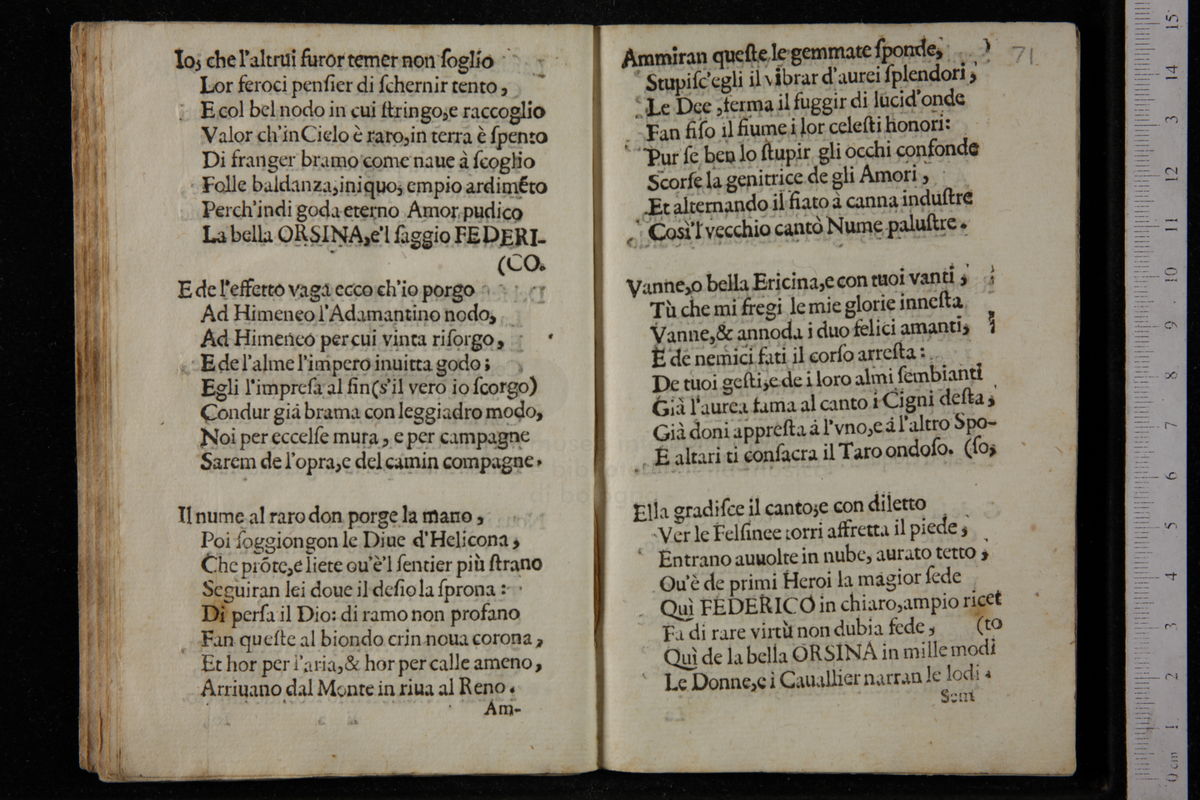 Io, che l'altrui furor temer non ſoglio
Lor feroci penſier di ſchernir tento,
E col bel nodo in cui ſtringo,e raccoglio
Valor ch'in Cielo è raro,in terra è ſpento
Di franger bramo come naue à ſcoglio
Folle baldanza,iniquo, empio ardimẽto
Perch'indi goda eterno Amor pudico
La bella ORSINA,e'l ſaggio FEDERI-
(CO.
E de l'effetto vaga ecco ch'io porgo
Ad Himeneo l'Adamantino nodo,
Ad Himeneo per cui vinta riſorgo,
E de l'alme l'impero inuitta godo;
Egli l'impreſa al fin(s'il vero io ſcorgo)
Condur già brama con leggiadro modo,
Noi per eccelſe mura, e per campagne
Sarem de l'opra,e del camin compagne.
Il nume al raro don porge la mano,
Poi ſoggiongon le Diue d'Helicona,
Che prõte,e liete ou'è'l ſentier più ſtrano
Seguiran lei doue il deſio la ſprona:
Di perſa il Dio: di ramo non profano
Fan queſte al biondo crin noua corona,
Et hor per l'aria,& hor per calle ameno,
Arriuano dal Monte in riua al Reno.
Am-
71
Ammiran queſte le gemmate ſponde,
Stupiſc'egli il vibrar d'aurei ſplendori,
Le Dee ,ferma il fuggir di lucid'onde
Fan fiſo il fiume i lor celeſti honori:
Pur ſe ben lo ſtupir gli occhi confonde
Scorſe la genitrice de gli Amori,
Et alternando il fiato à canna induſtre
Così'l vecchio cantò Nume paluſtre.
Vanne,o bella Ericina,e con tuoi vanti,
Tù che mi fregi le mie glorie inneſta
Vanne,& annoda i duo felici amanti,
E de nemici fati il corſo arreſta:
De tuoi geſti,e de i loro almi ſembianti
Già l'aurea fama al canto i Cigni deſta,
Già doni appreſta à l'vno,e à l'altro Spo-
E altari ti conſacra il Taro ondoſo. (ſo,
Ella gradiſce il canto,e con diletto
Ver le Felſinee torri affretta il piede,
Entrano auuolte in nube, aurato tetto,
Ou'è de primi Heroi la magior ſede
Quì FEDERICO in chiaro,ampio ricet
Fa di rare virtù non dubia fede, (to
Quì de la bella ORSINA in mille modi
Le Donne,e i Cauallier narran le lodi.
Sent